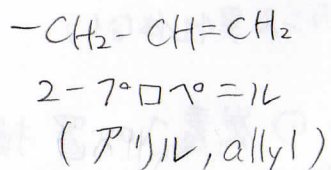 -CH₂-CH=CH₂
2-プロペニル
(アリル, allyl)